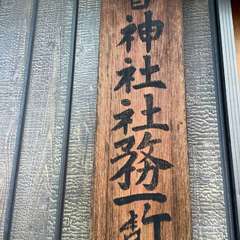 神社社務所